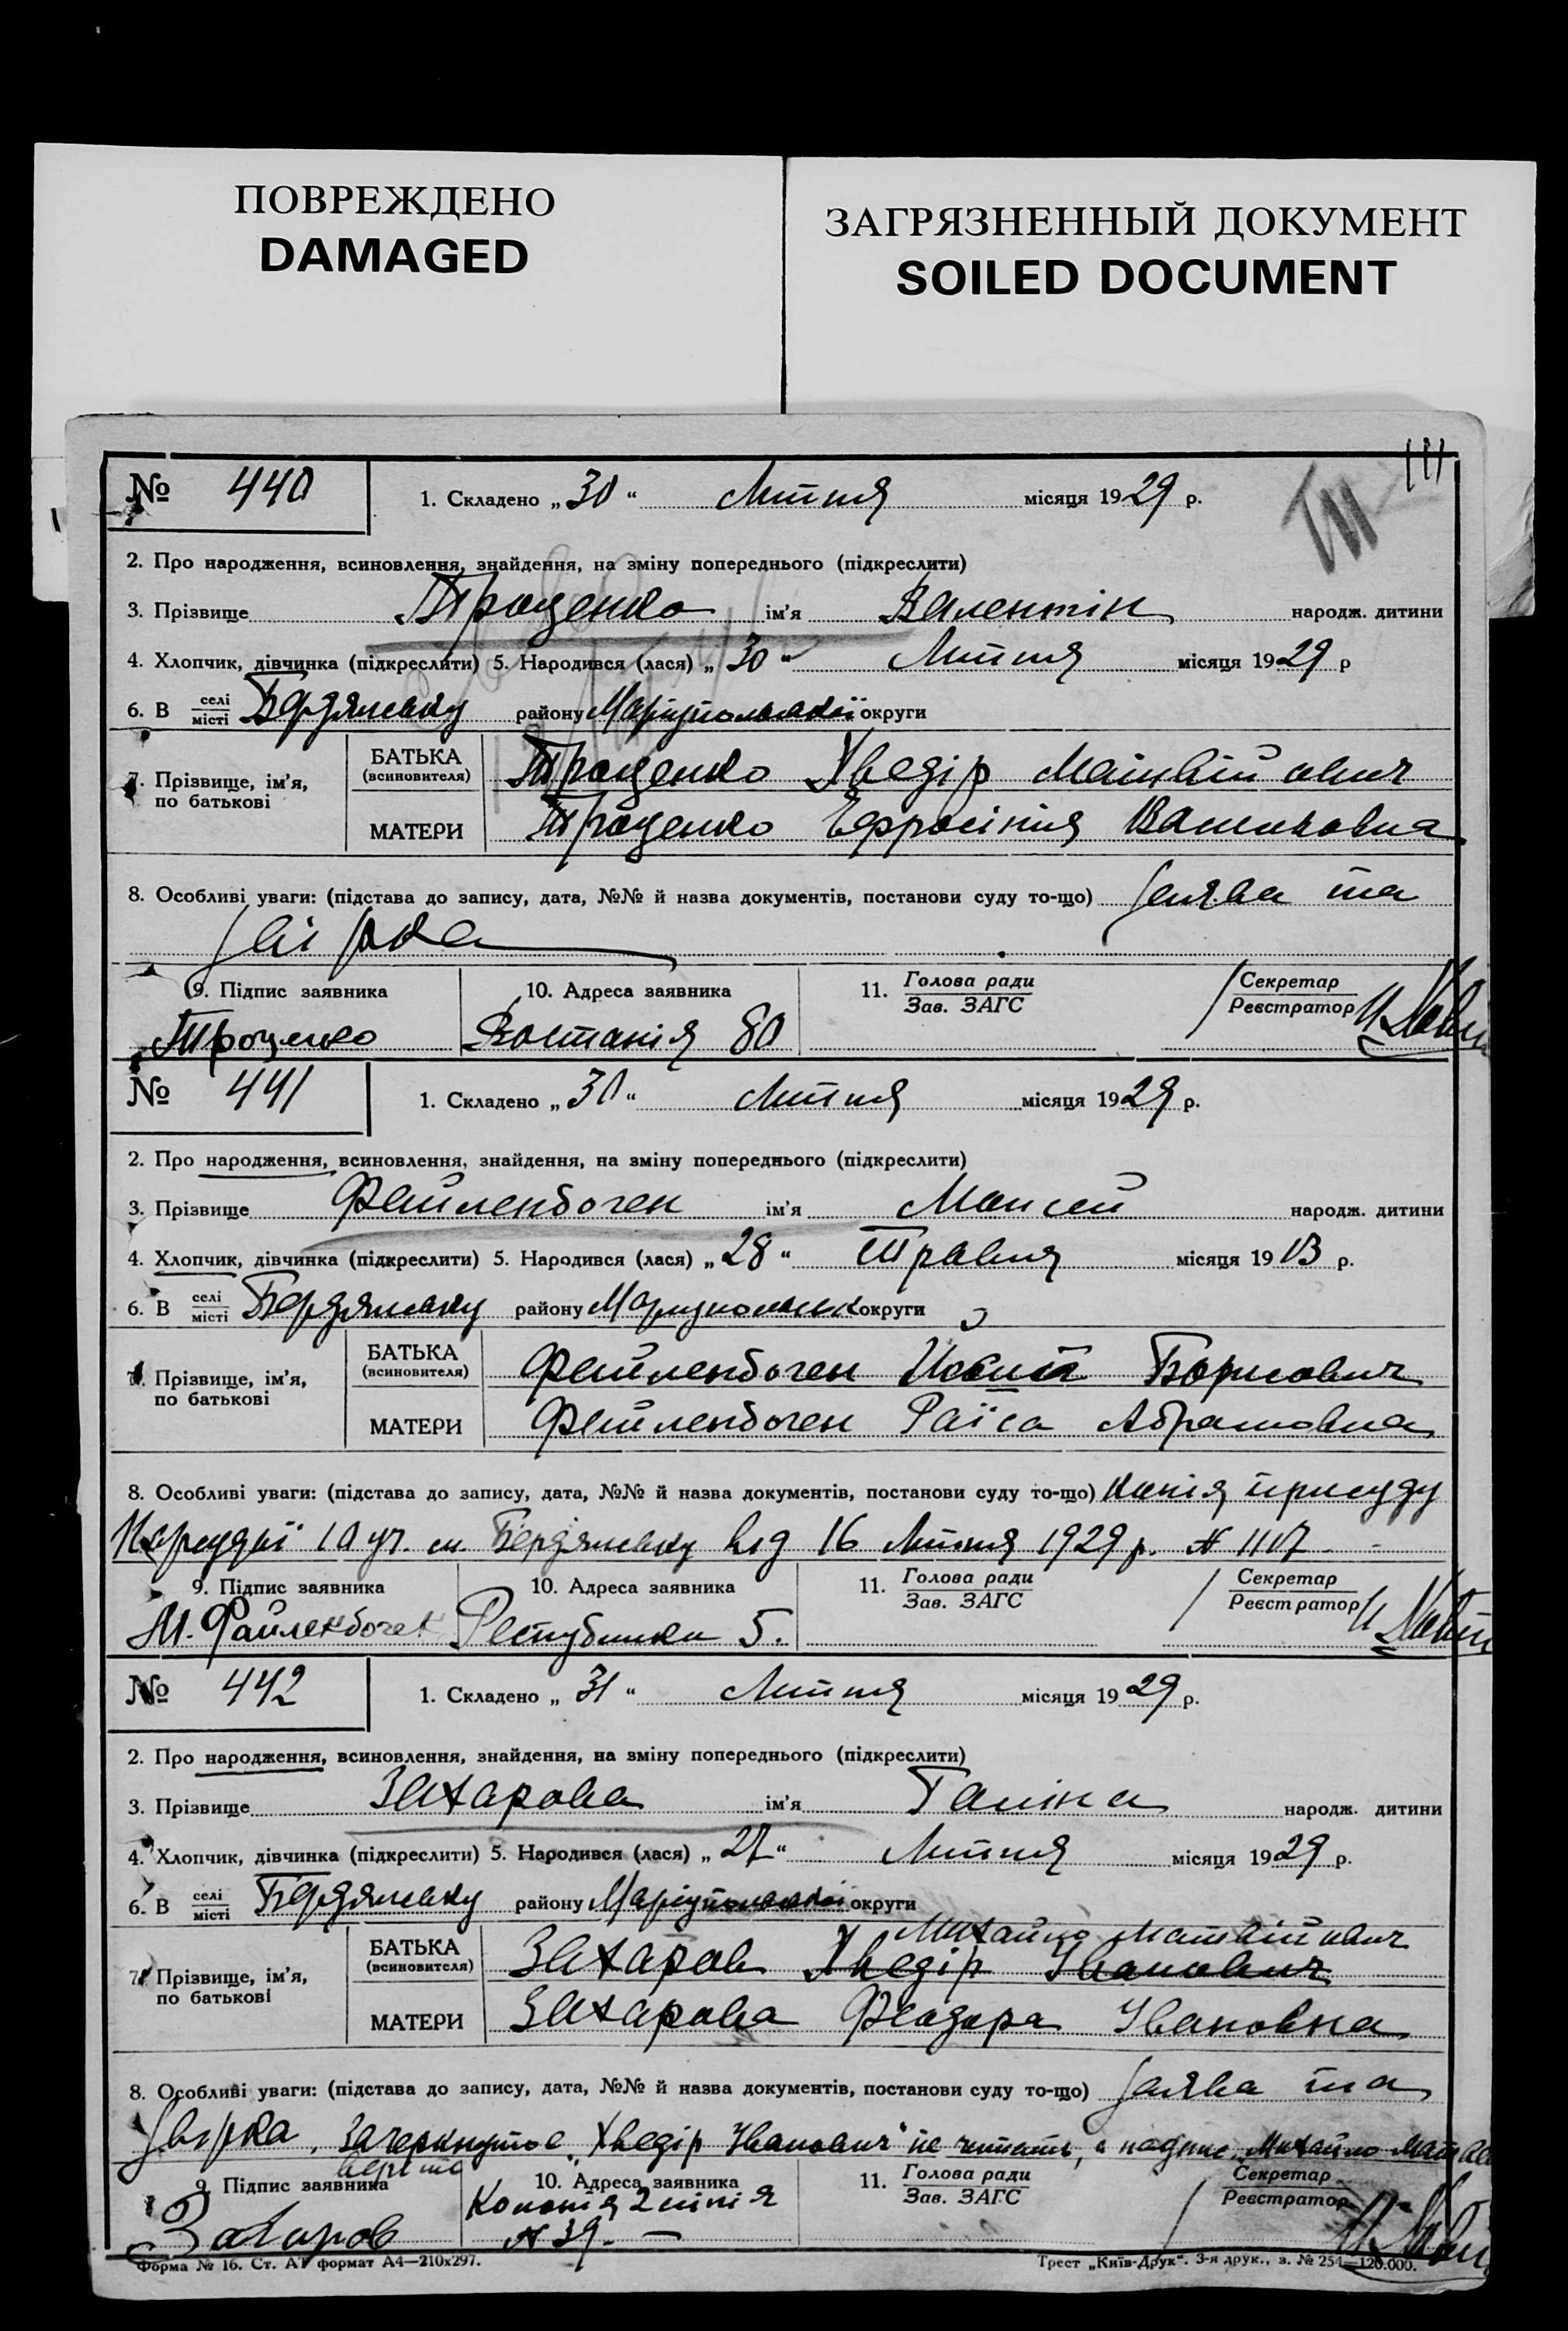 ПОВРЕЖДЕНО
DAMAGED
ЗАГРЯЗНЕННЫЙ ДОКУМЕНТ
SOILED DOCUMENT
№ 440 1. Складено „30“ Липня місяця 1929 р.
2. Про народження, всиновлення, знайдення, на зміну попереднього (підкреслити)
3. Прізвище Троценко ім'я Валентін народж. дитини
4. Хлопчик, дівчинка (підкреслити) 5. Народився (лася) „30“ Липня місяця 1929 р
6. В селі/місті Бердянську району Маріупольської округи
7. Прізвище, ім'я, по батькові БАТЬКА (всиновителя) Троценко Хведір Матвійович
МАТЕРИ Троценко Ефросінія
8. Особливі уваги: (підстава до запису, дата, №№ й назва документів, постанови суду то-що) Заява та
Звірка
9. Підпис заявника 10. Адреса заявника 11. Голова ради/Зав. ЗАГС Секретар/Реєстратор
Троценко Востанія 80
№ 441 1. Складено „30“ Липня місяця 1929 р.
2. Про народження, всиновлення, знайдення, на зміну попереднього (підкреслити)
3. Прізвище Файленбоген ім'я Моисей народж. дитини
4. Хлопчик, дівчинка (підкреслити) 5. Народився (лася) „28“ Травня місяця 1913 р.
6. В селі/місті Бердянську району Маріупольськ округи
7. Прізвище, ім'я, по батькові БАТЬКА (всиновителя) Файленбоген Борисович
МАТЕРИ Файленбоген Раїса Абрамовна
8. Особливі уваги: (підстава до запису, дата, №№ й назва документів, постанови суду то-що) Копія присуду
Нарсуду 10 уч. м. Бердянську від 16 Липня 1929 р. № 1107
9. Підпис заявника 10. Адреса заявника 11. Голова ради/Зав. ЗАГС Секретар/Реєстратор
М. Файленбоген Республики 5.
№ 442 1. Складено „31“ Липня місяця 1929 р.
2. Про народження, всиновлення, знайдення, на зміну попереднього (підкреслити)
3. Прізвище Захарова ім'я Галина народж. дитини
4. Хлопчик, дівчинка (підкреслити) 5. Народився (лася) „27“ Липня місяця 1929 р.
6. В селі/місті Бердянську району Маріупольської округи
Михайло Матвійович
7. Прізвище, ім'я, по батькові БАТЬКА (всиновителя) Захаров Хведір Іванович
МАТЕРИ Захарова Феодора Івановна
8. Особливі уваги: (підстава до запису, дата, №№ й назва документів, постанови суду то-що) Заява та
Звірка. Зачеркнутое „Хведір Іванович" не читать, а надпис „Михайло
верить
9. Підпис заявника 10. Адреса заявника 11. Голова ради/Зав. ЗАГС Секретар/Реєстратор
Захаров Колонія 2 лінія
№ 39.
Форма № 16. Ст. А1 формат А4—210x297. Трест „Київ-Друк". 3-я друк., з. № 254—120.000.